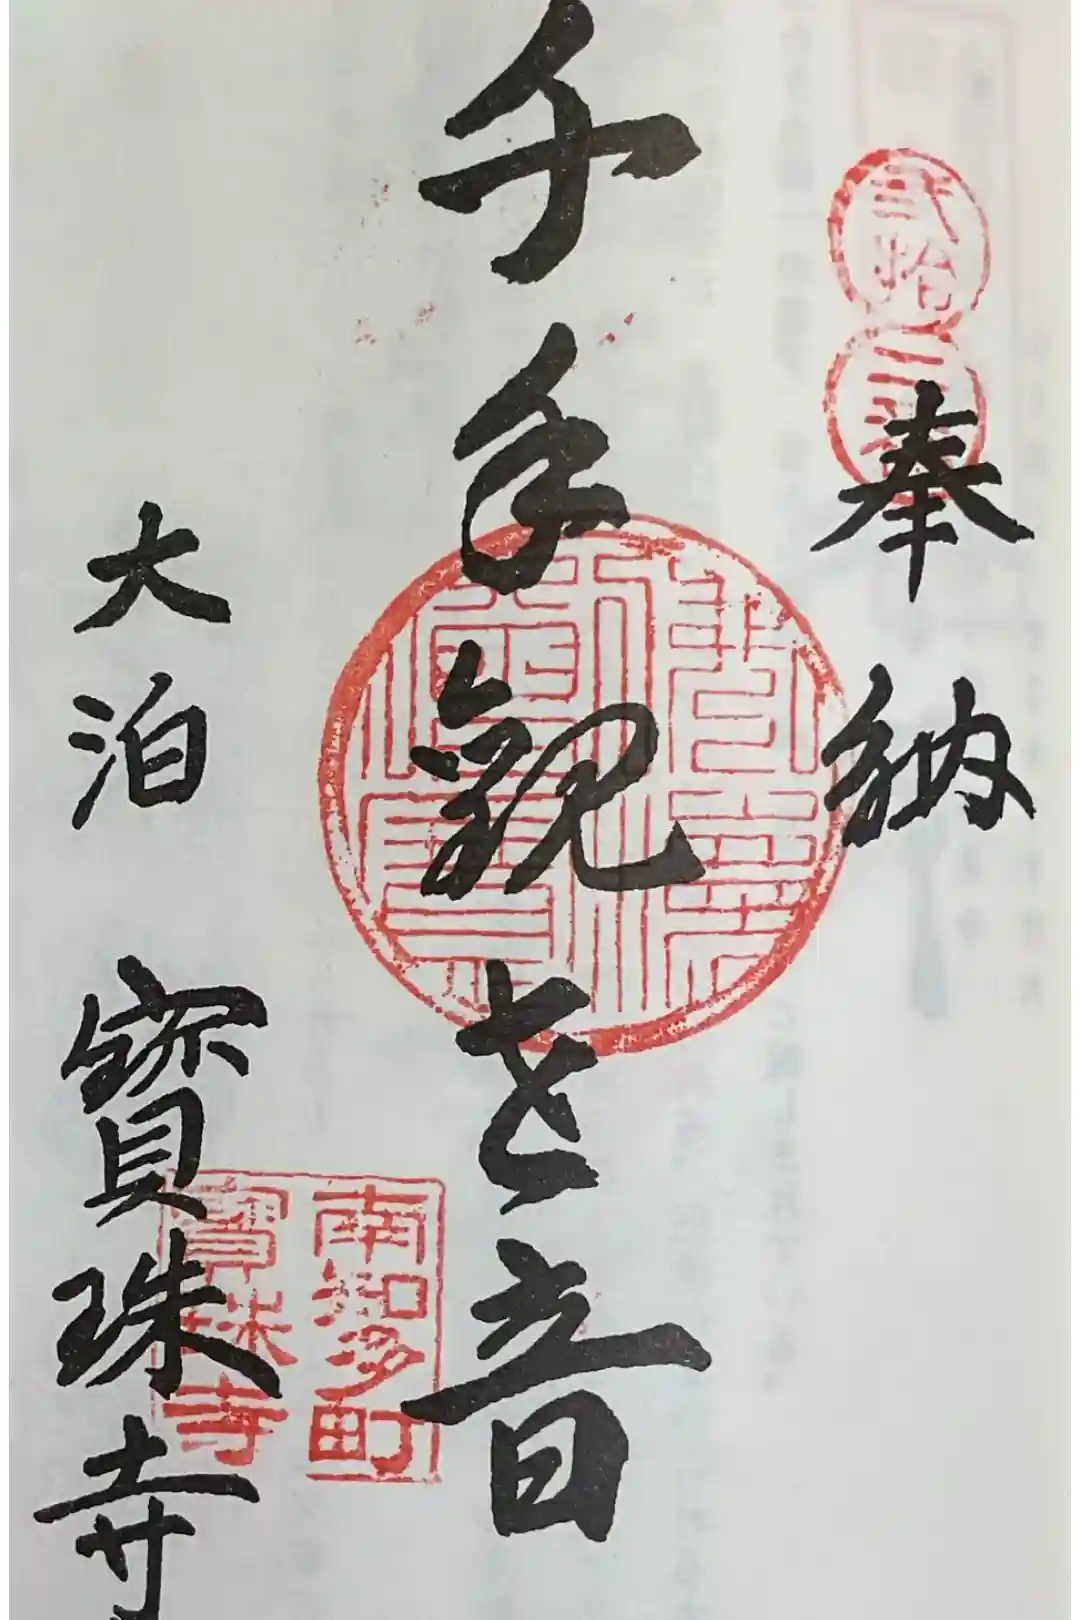 奉納
千手観世音
大泊 寳珠寺
南知多町
寳珠寺